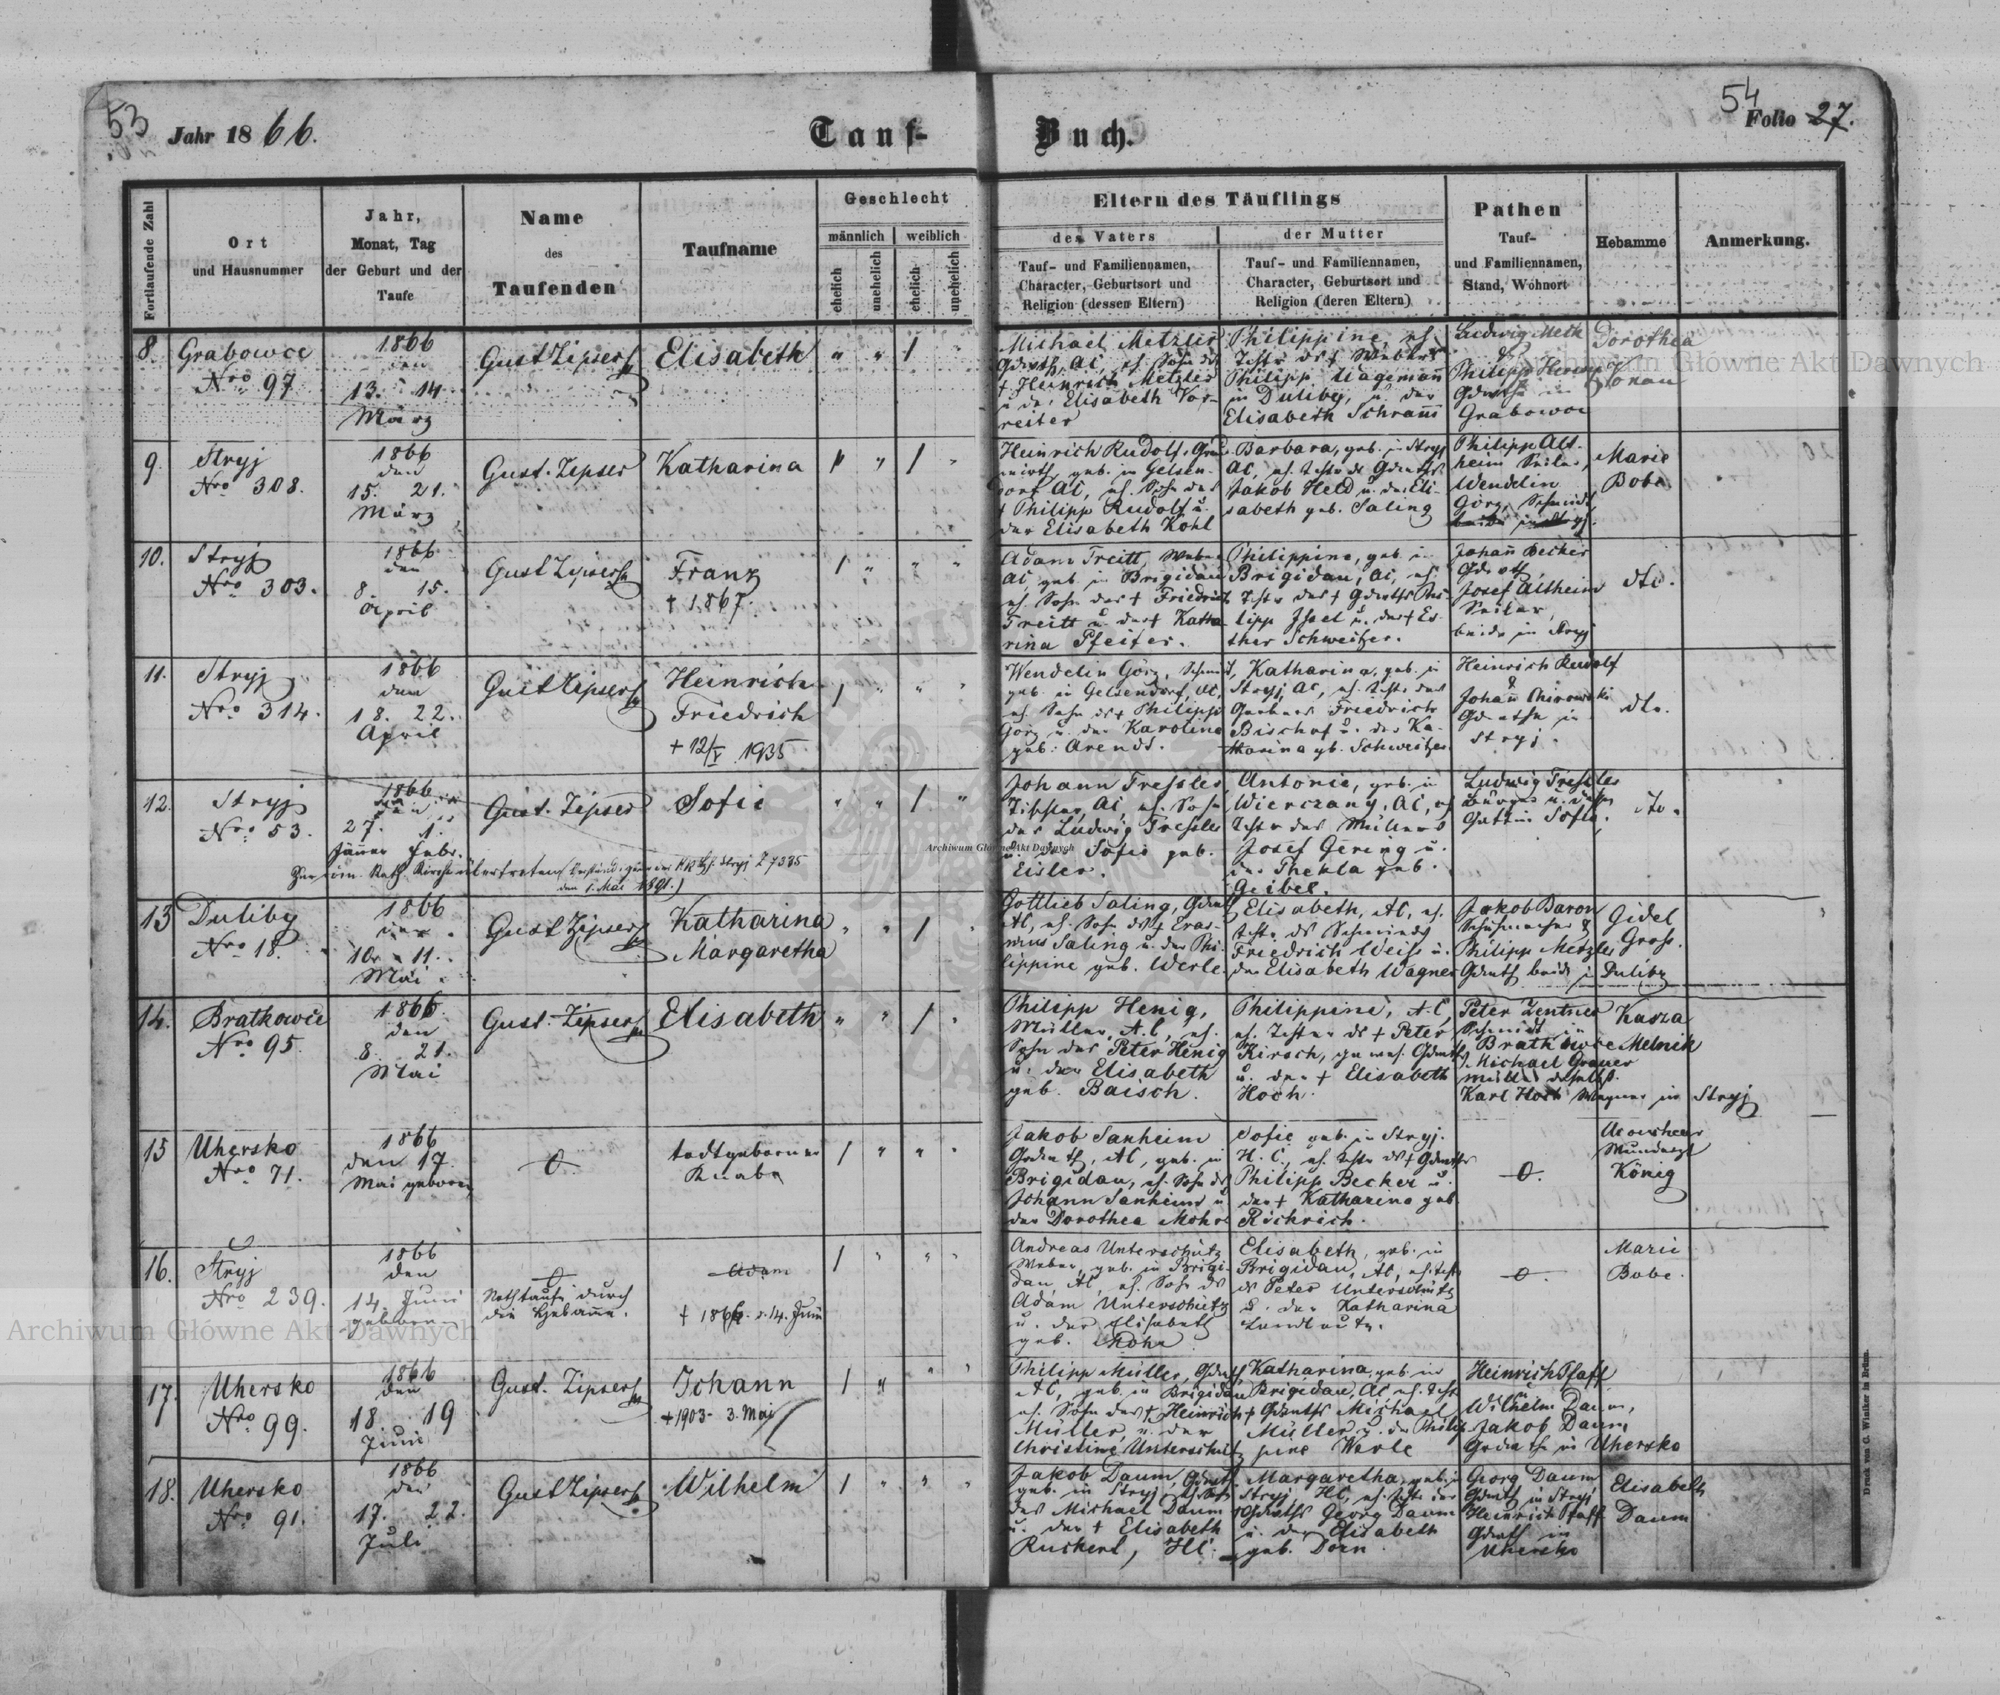 53
54
Jahr 1866.
Tauf-
Buch.
Folio 27.
Fortlaufende Zahl
Ort
und Hausnummer
Jahr,
Monat, Tag
der Geburt und der
Taufe
Name
des
Taufenden
Taufname
Geschlecht
männlich
weiblich
ehelich
unehelich
ehelich
unehelich
Eltern des Täuflings
des Vaters
Tauf- und Familiennamen,
Character, Geburtsort und
Religion (dessen Eltern)
der Mutter
Tauf- und Familiennamen,
Character, Geburtsort und
Religion (deren Eltern)
Pathen
Tauf-
und Familiennamen,
Stand, Wohnort
Hebamme
Anmerkung.
8.
Grabowce
Nro 97
1866
den
13. 14
März
Gust Zipser
Elisabeth
Michael Metzler
+ Heinrich Metzler
u der Elisabeth Vor-
reiter
Philippine, eh.
Philipp Wagemañ
in Duliby, u. der
Elisabeth Schram̄
Ludwig Meth
&
Philipp
Grabowce
Dorothea
9.
Stryj
Nro 308.
1866
den
15. 21.
März
Gust. Zipser
Katharina
Heinrich Rudolf, Grd
wirth, geb. in Gelsen-
dorf AC, eh. Sohn des
+ Philipp Rudolf u.
der Elisabeth Kohl
Barbara, geb. in Stryj
AC, eh.
Jakob Held u. der Eli-
sabeth geb. Saling
Philipp Alt-
heim Seiler,
Wendelin
Görz, Schmidt
beide in Stryj.
Marie
Bobe
10.
Stryj
Nro 303.
1866
den
8. 15.
April
Gust Zipser
Franz
+ 1867.
Adam Treitt, Weber
AC geb in Brigidau
eh. Sohn des + Friedrich
Treitt u. der + Katha-
rina Pfeifer.
Philippine, geb. in
Brigidau, AC, eh.
lipp Issel u. der + Es-
ther Schweitzer.
Johañ Becker
Josef Altheim
Seiler,
beide in Stryj
dto.
11.
Stryj
Nro 314.
1866
den
18. 22.
April
Gust Zipser
Heinrich
Friedrich
+ 12/V 1935
Wendelin Görz, Schmidt,
geb. in Gelsendorf, AC,
eh. Sohn ds + Philipp
Görz u. der Karolina
geb. Arendt.
Katharina, geb. in
Stryj, AC, eh.
Friedrich
Bischof u. der Ka-
tharina gb. Schweitzer
Heinrich Rudolf
&
Johañ
in
Stryj.
dto.
12.
Stryj
Nro 53.
1866
den
27. 1.
Jänner Febr.
Gust. Zipser
Sofie
Johann Tressler
Tischler, AC, eh. Sohn
des Ludwig Tressler
u. der Sofie geb.
Eisler.
Antonie, geb. in
Wierczany, AC, eh
des Müllers
Josef Gering u.
der Thekla geb.
Geibel.
Ludwig Tressler
Bürger u. dessen
Gattin Sofie.
dto.
Zur röm. Kath. Kirche übertreten
Stryj Z 7385
den 1. Mai 1891.)
13
Duliby
Nro 18.
1866
den
10. 11.
Mai.
Gust Zipser
Katharina
Margaretha
Gottlieb Saling,
AC, eh. Sohn ds + Eras-
mus Saling u. der Phi-
lippine geb. Werle
Elisabeth, AC, eh.
Friedrich Weiss u.
der Elisabeth Wagner
Jakob Baron
Schuhmacher &
Philipp Metzler
beide in Duliby
Gidel
Gross.
14.
Bratkowce
Nro 95.
1866
den
8. 21.
Mai
Gust. Zipser
Elisabeth
Philipp Henig,
Müller, A.C, eh.
Sohn des Peter Henig
u. der Elisabeth
geb. Baisch.
Philippine, A.C,
eh. Tochter ds + Peter
Kirsch,
u. der + Elisabeth
Hoch.
Peter Zentner
Schmidt in
Bratkowce
Michael Grauer
Karl Hoch Wagner in Stryj
Kasza
Melnik
15
Uhersko
Nro 71.
1866
den 17.
Mai geboren
0
todtgeborner
Knabe
Jakob Sanheim
AC, geb. in
Brigidau, eh. Sohn ds
Johann Sanheim u.
der Dorothea Mohr
Sofie geb. in Stryj.
H. C., eh.
Philipp Becker u.
der + Katharina geb.
Richrich.
0.
Wundarzt
König
16.
Stryj
Nro 239.
1866
den
14. Juni
geboren
0
Nothtaufe durch
die Hebaṁe.
Adam
+ 1866 d. 14. Juni
Andreas Unterschütz
Weber, geb. in Brigi-
dau, AC, eh. Sohn ds
Adam Unterschütz
u. der Elisabeth
geb. Mohr
Elisabeth, geb. in
Brigidau, AC, eh.
ds Peter Unterschütz
u. der Katharina
0.
Marie
Bobe.
17.
Uhersko
Nro 99.
1866
den
18. 19
Juni
Gust. Zipser
Johann
+ 1903 - 3. Mai
Philipp Müller,
AC, geb. in Brigidau
eh. Sohn des + Heinrich
Müller, u. der
Christine Unterschütz
Katharina, geb. in
Brigidau, AC eh.
Michael
Müller u. der Philip-
pine Werle
Heinrich Pfaff
Wilhelm Daum,
Jakob Daum
in Uhersko
18.
Uhersko
Nro 91.
1866
den
17. 22.
Juli
Gust Zipser
Wilhelm
Jakob Daum
geb. in Stryj,
des Michael Daum
u. der + Elisabeth
Ruckert, HC.
Margaretha, geb. in
Stryj, HC, eh.
Georg Daum
u. der Elisabeth
geb. Dorn.
Georg Daum
in Stryj
Heinrich Pfaff
in
Uhersko
Elisabeth
Daum
Druck von C. Winiker in Brünn.
Archiwum Główne Akt Dawnych
Archiwum Główne Akt Dawnych
Archiwum Główne Akt Dawnych